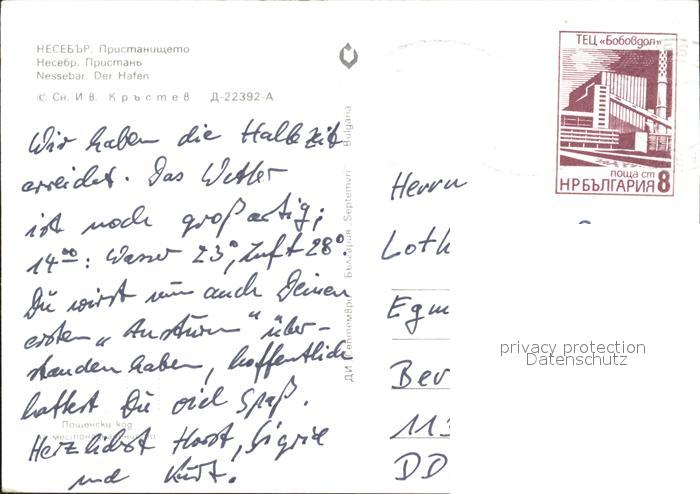 НЕСЕБЪР. Пристанището
Несебр. Пристань
Nessebar. Der Hafen
© Сн. Ив. Кръстев Д-22392-А
Wir haben die Halbzeit
erreicht. Das Wetter
ist noch großartig;
14⁰⁰: Wasser 23°, Luft 28°.
Du wirst nun auch Deinen
ersten „Ansturm“ über-
standen haben, hoffentlich
hattest Du viel Spaß.
Herzlichst Horst, Sigrid
und Kurt.
Пощенски код
ДИ Септември България Septemvri Bulgaria
ТЕЦ „Бобовдол“
поща ст
НР БЪЛГАРИЯ 8
Herrn
Loth
Egm
Ber
113
DD
privacy protection
Datenschutz